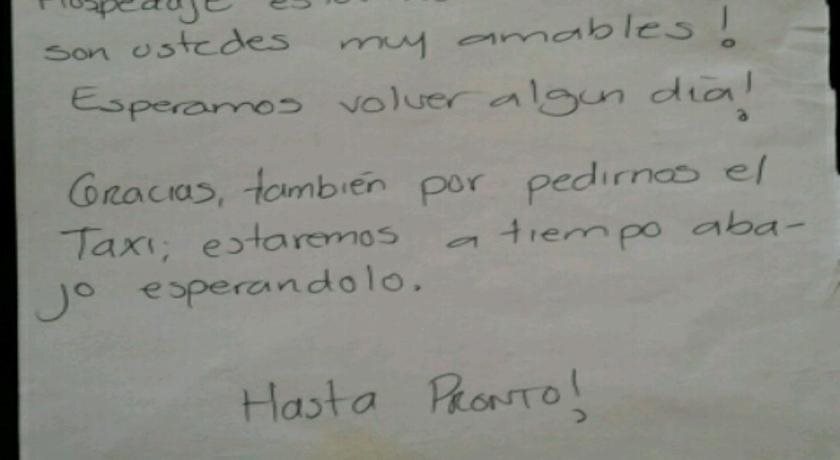 Hospedaje
son ustedes muy amables!
Esperamos volver algun día!
Gracias, también por pedirnos el
Taxi; estaremos a tiempo aba-
jo esperandolo.
Hasta PRONTO!